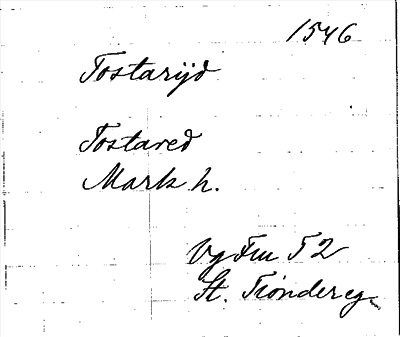 1546
Tostarijd
Tostared
Marks h.
Vg Fm 52
St. Tiondereg.